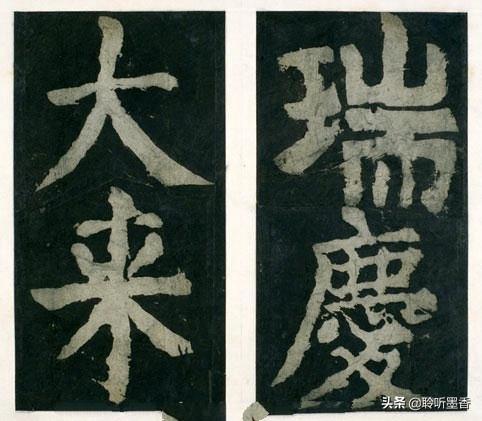 瑞慶
大来
头条 @聆听墨香